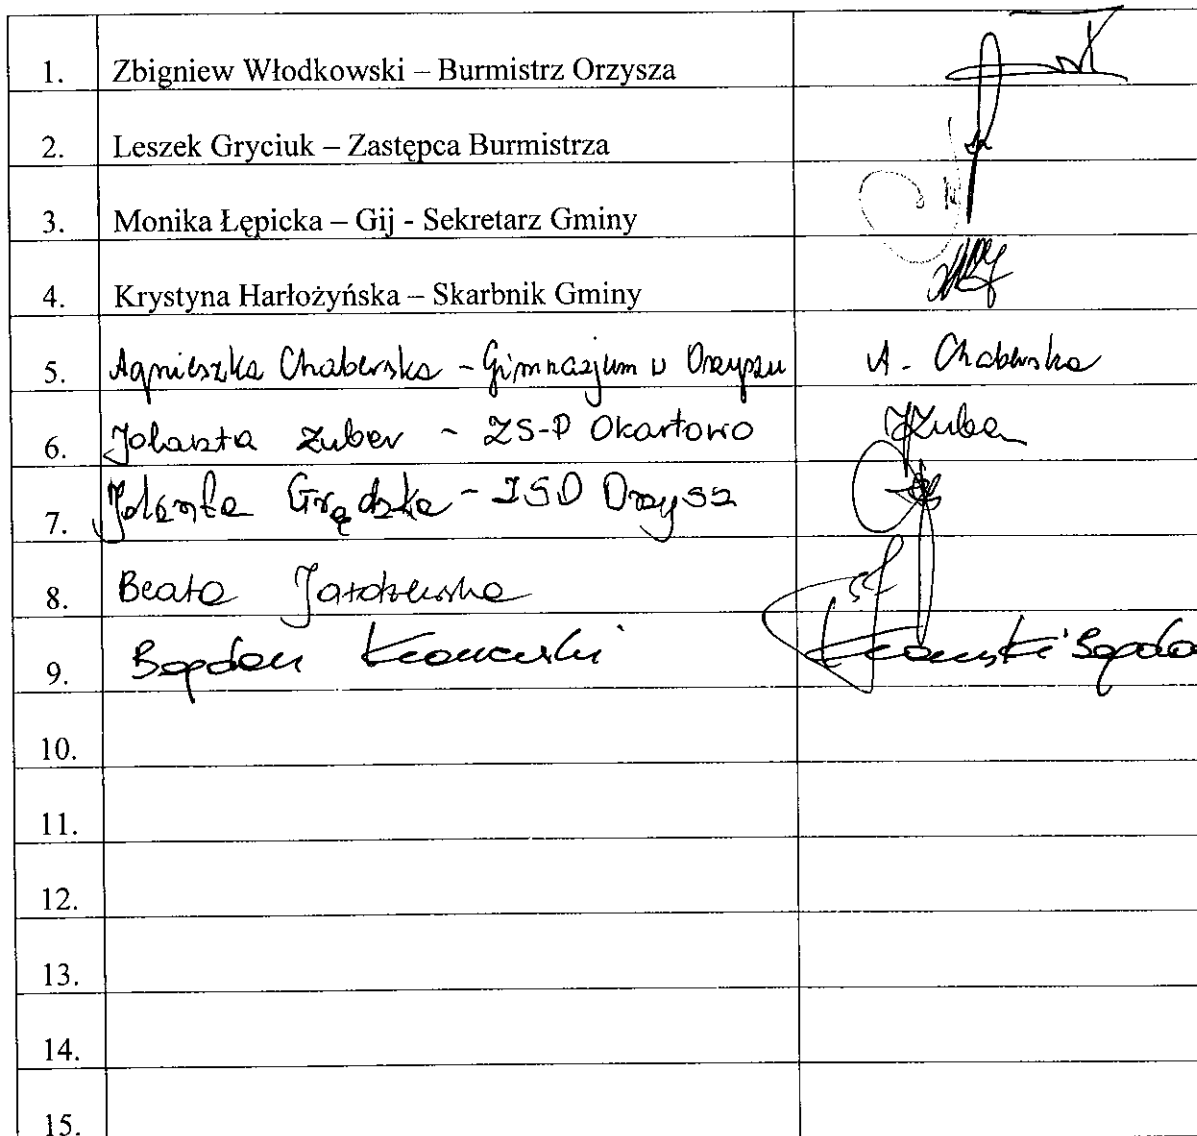 1. Zbigniew Włodkowski – Burmistrz Orzysza
2. Leszek Gryciuk – Zastępca Burmistrza
3. Monika Łępicka – Gij - Sekretarz Gminy
4. Krystyna Harłożyńska – Skarbnik Gminy
5. Agnieszka Chaberska - Gimnazjum w Orzyszu A. Chaberska
6. Jolanta Zuber - ZS-P Okartowo JZuber
7. Jolanta Grędzka - Orzysz
8. Beata
9. Bogdan
10.
11.
12.
13.
14.
15.